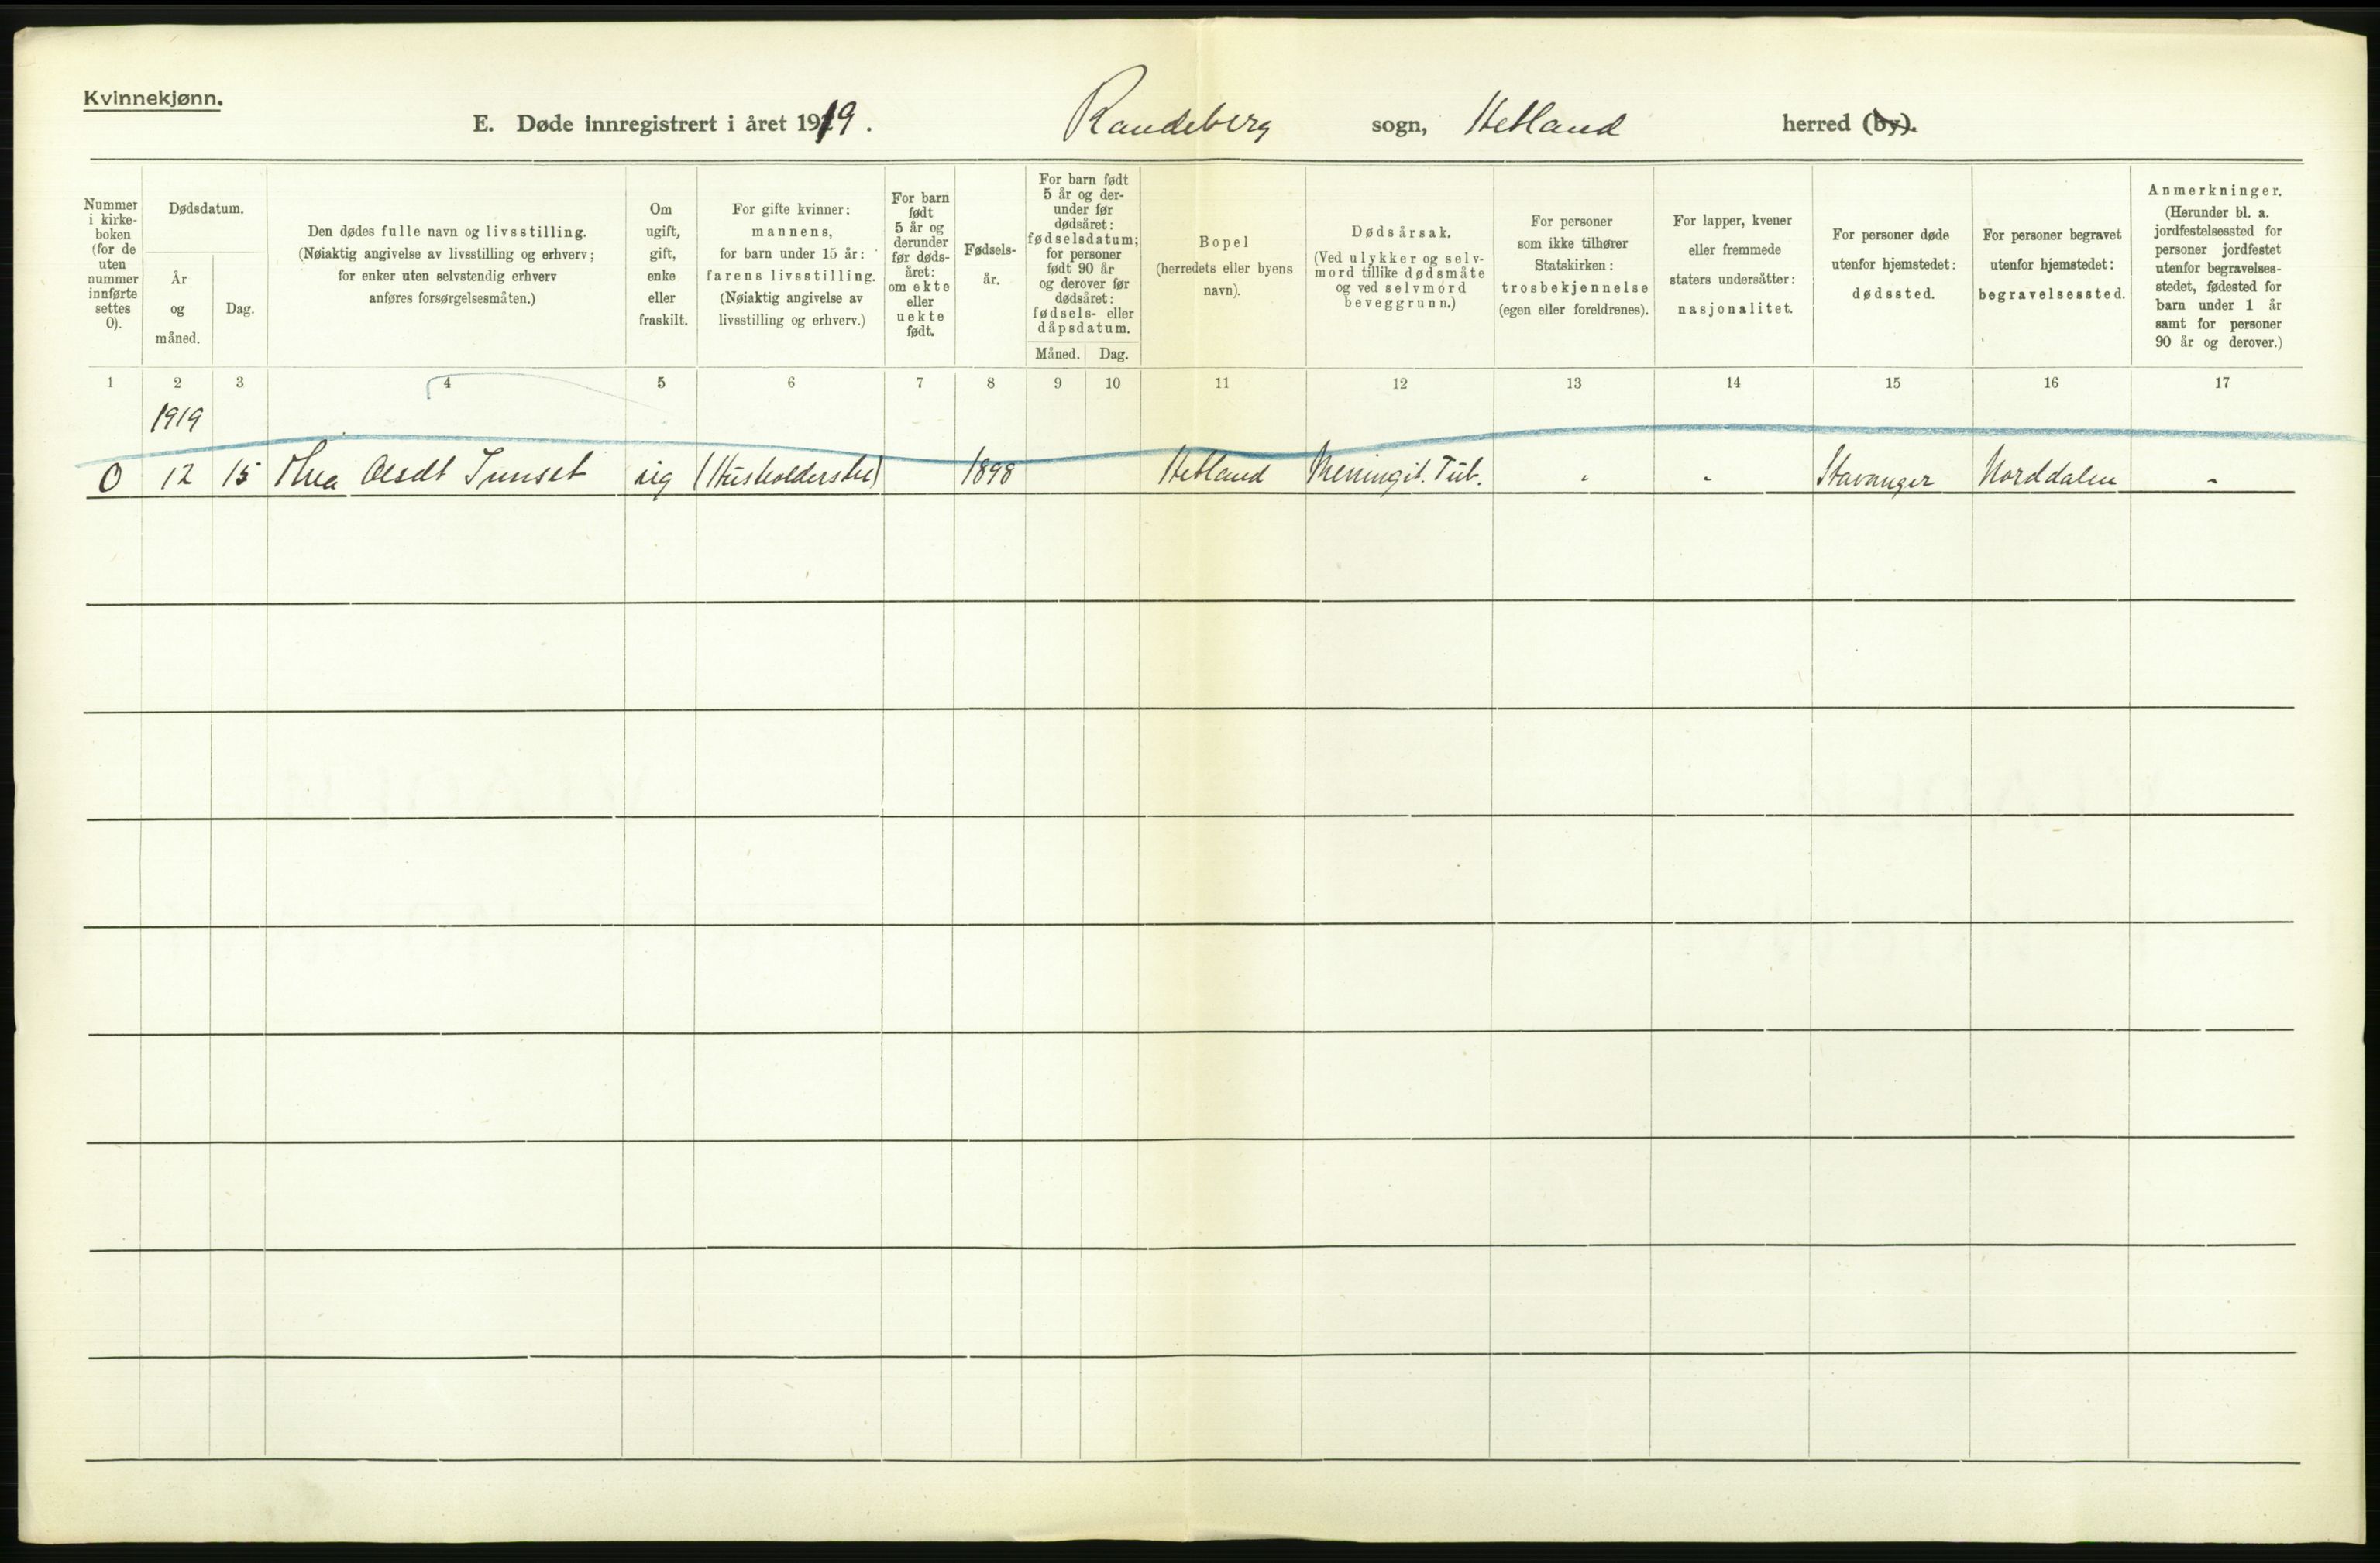 Kvinnekjønn.
E. Døde innregistrert i året 1919. Randeberg sogn, Hetland herred (by).
Nummer i kirke- boken (for de uten nummer innførte settes 0).
Dødsdatum.
År og måned.
Dag.
Den dødes fulle navn og livsstilling.
(Nøiaktig angivelse av livsstilling og erhverv;
for enker uten selvstendig erhverv
anføres forsørgelsesmåten.)
Om ugift, gift, enke eller fraskilt.
For gifte kvinner:
mannens,
for barn under 15 år:
farens livsstilling.
(Nøiaktig angivelse av
livsstilling og erhverv.)
For barn født 5 år og derunder før døds- året: om ekte eller uekte født.
Fødsels- år.
For barn født 5 år og der- under før dødsåret: fødselsdatum; for personer født 90 år og derover før dødsåret: fødsels- eller dåpsdatum.
Måned. Dag.
Bopel
(herredets eller byens
navn).
Dødsårsak.
(Ved ulykker og selv-
mord tillike dødsmåte
og ved selvmord
beveggrunn.)
For personer
som ikke tilhører
Statskirken:
trosbekjennelse
(egen eller foreldrenes).
For lapper, kvener
eller fremmede
staters undersåtter:
nasjonalitet.
For personer døde
utenfor hjemstedet:
dødssted.
For personer begravet
utenfor hjemstedet:
begravelsessted.
Anmerkninger.
(Herunder bl. a.
jordfestelsessted for
personer jordfestet
utenfor begravelses-
stedet, fødested for
barn under 1 år
samt for personer
90 år og derover.)
1 2 3 4 5 6 7 8 9 10 11 12 13 14 15 16 17
1919
0 12 15 Olsdt Tunset ug (Husholderske) 1898 Hetland Meningit. Tub. - - Stavanger Norddalen -